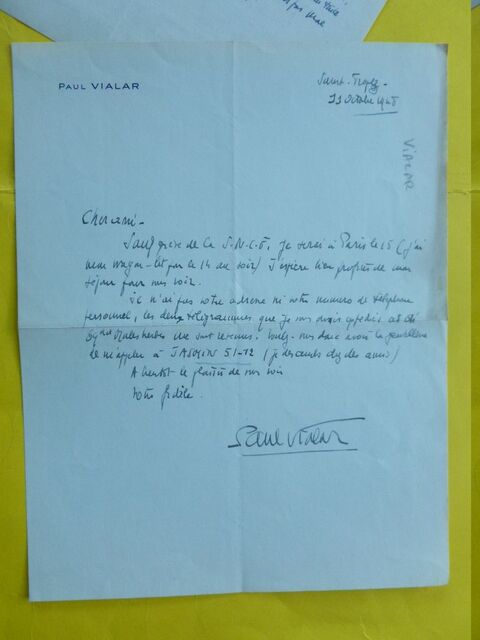 PAUL VIALAR
Saint-Tropez -
11 Octobre 1948
VIALAR
Cher ami -
Sauf grève de la S.N.C.F, je serai à Paris le 15 (j'ai
mon wagon-lit pour le 14 au soir) J'espère bien profiter de mon
séjour pour vous voir.
Je n'ai pas votre adresse ni votre numéro de téléphone
personnel, les deux télégrammes que je vous avais expédiés
me sont revenus. Voulez-vous donc avoir la gentillesse
de m'appeler à JASMIN 51-12 (je descends chez des amis)
A bientôt le plaisir de vous voir
Votre fidèle.
Paul Vialar